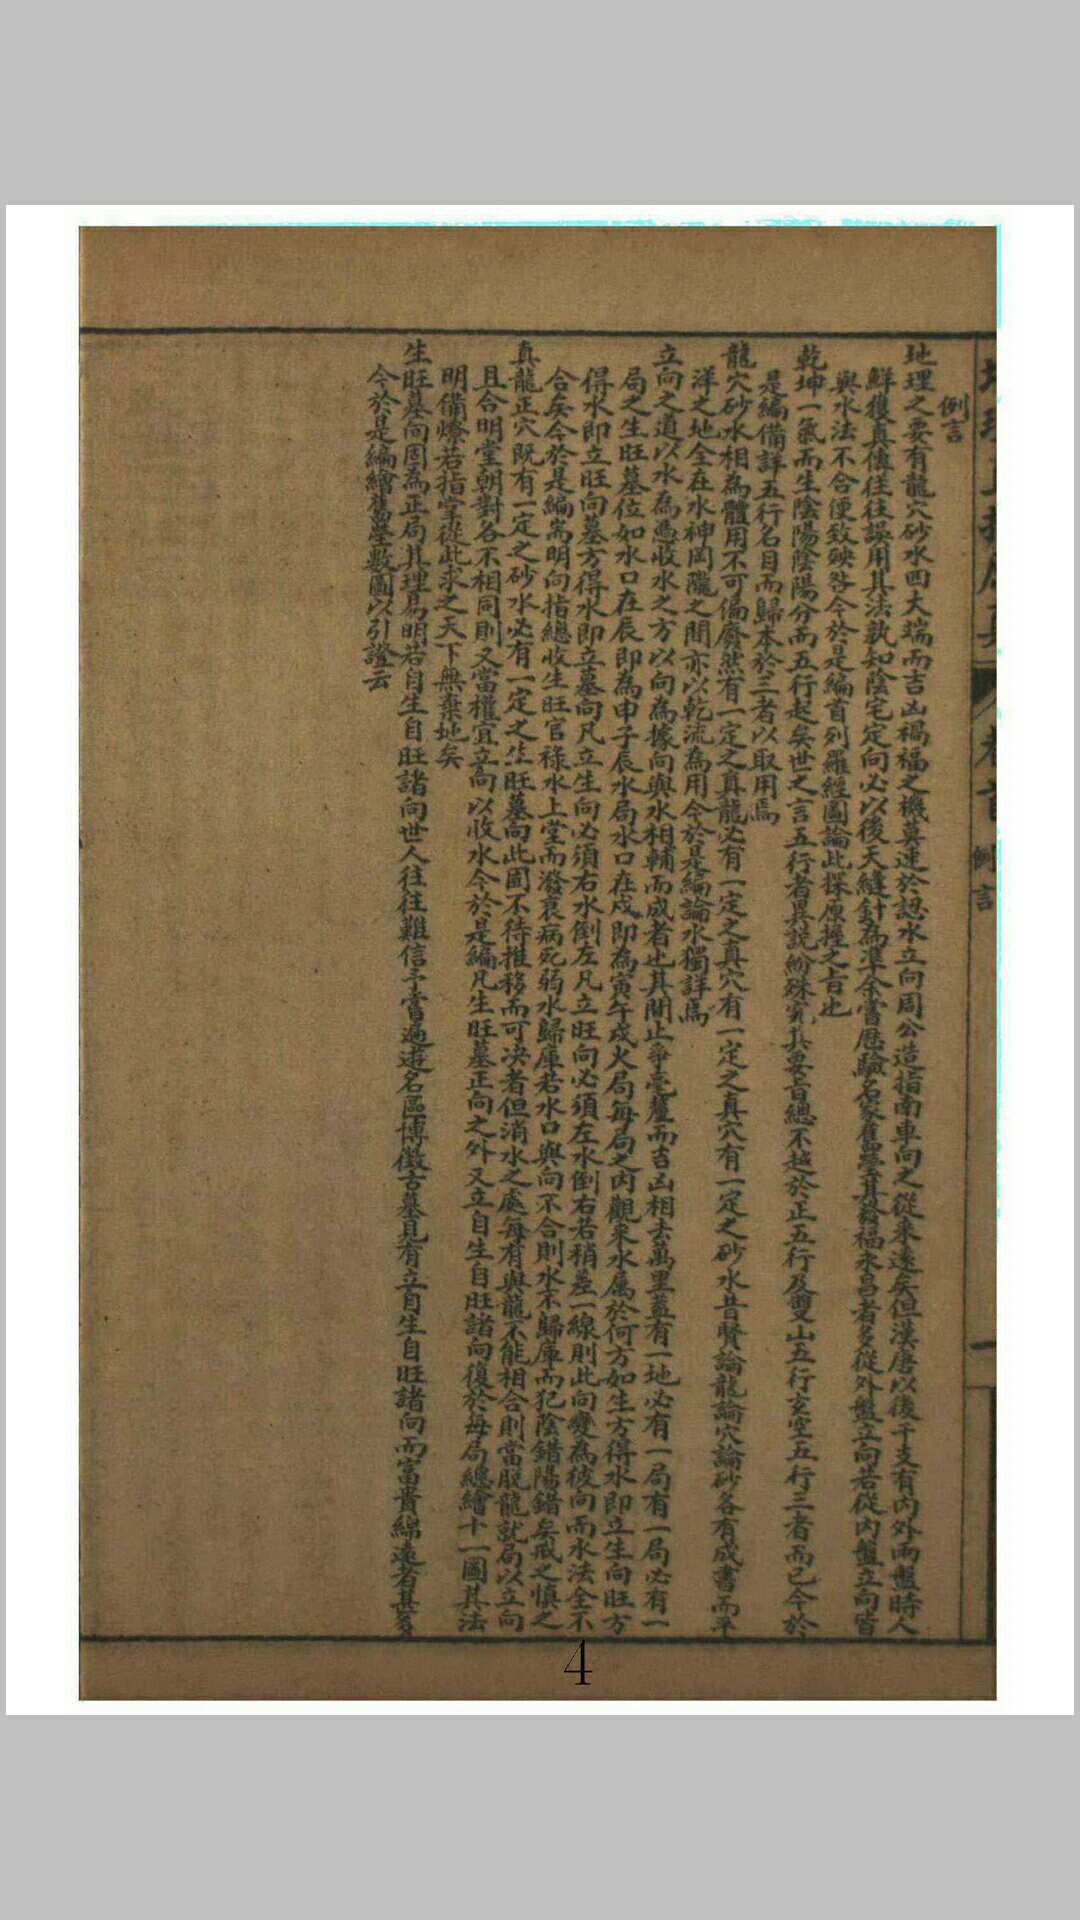 例言
地理之要有龍穴砂水四大端而吉凶禍福之機莫速於認水立向周公造指南車向之從來遠矣但漢唐以後干支有內外兩盤時人
鮮獲真傳往往誤用其法孰知陰宅定向必以後天縫針為準余嘗歷驗名家舊塋其發福永昌者多從外盤立向若從內盤立向皆
與水法不合便致殃咎今於是編首列羅經圖論此探原握之旨也
乾坤一氣而生陰陽陰陽分而五行起矣世之言五行者異說紛殊究其要旨總不越於正五行及雙山五行玄空五行三者而已今於
是編備詳五行名目而歸本於三者以取用焉
龍穴砂水相為體用不可偏廢然有一定之真龍必有一定之真穴有一定之真穴有一定之砂水昔賢論龍論穴論砂各有成書而平
洋之地全在水神岡隴之間亦以乾流為用今於是編論水獨詳焉
立向之道以水為憑收水之方以向為據向與水相輔而成者也其間止爭毫釐而吉凶相去萬里蓋有一地必有一局有一局必有一
局之生旺墓位如水口在辰即為申子辰水局水口在戍即為寅午戍火局每局之內觀來水屬於何方如生方得水即立生向旺方
得水即立旺向墓方得水即立墓向凡立生向必須右水倒左凡立旺向必須左水倒右若稍差一線則此向變為彼向而水法全不
合矣今於是編耑明向指總收生旺官祿水上堂而潑衰病死弱水歸庫若水口與向不合則水不歸庫而犯陰錯陽錯矣戒之慎之
真龍正穴既有一定之砂水必有一定之生旺墓向此固不待推移而可决者但消水之處每有與龍不能相合則當脫龍就局以立向
且合明堂朝對各不相同則又當權宜立向以收水今於是編凡生旺墓正向之外又立自生自旺諸向復於每局總繪十一圖其法
明備燎若指掌從此求之天下無棄地矣
生旺墓向固為正局其理易明若自生自旺諸向世人往往難信予嘗遍遊名區博徵古墓見有立自生自旺諸向而富貴綿遠者甚多
今於是編繪舊塋數圖以引證云
卷首
例言
一
4